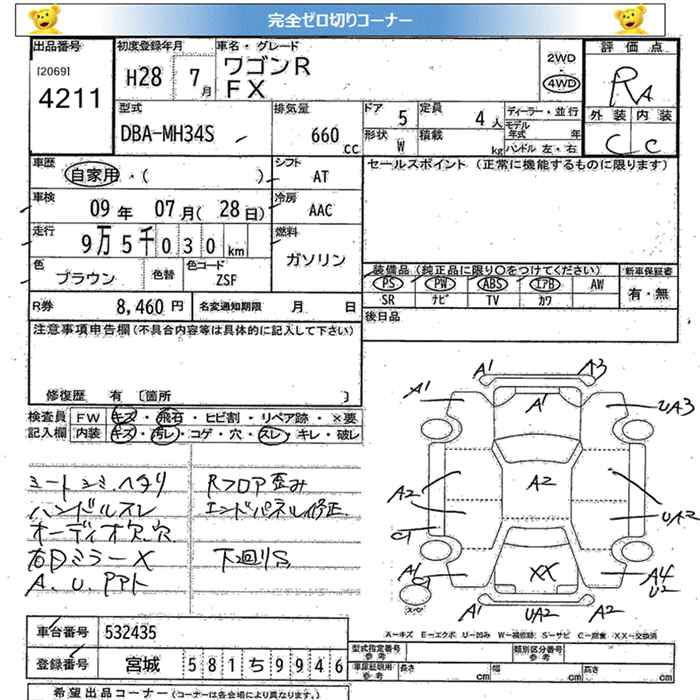 完全ゼロ切りコーナー
出品番号
[2069]
4211
初度登録年月
H28 7月
車名・グレード
ワゴンR
FX
2WD
・
4WD
評価点
RA
外装 内装
C C
型式
DBA-MH34S
排気量
660 cc
ドア 5
定員 4人
形状 W
積載 kg
ディーラー・並行
モデル年式 年
ハンドル 左・右
車歴
自家用・( )
シフト
AT
セールスポイント (正常に機能するものに限ります)
車検
09年 07月( 28日)
冷房
AAC
走行
9万5千030km
燃料
ガソリン
色
ブラウン
色替
色コード
ZSF
装備品 (純正品に限り○をつけてください)
PS PW ABS エアB AW
SR ナビ TV カワ
新車保証書
有・無
R券 8,460円
名変通知期限 月 日
後日品
注意事項申告欄(不具合内容等は具体的に記入して下さい)
修復歴 有 〔箇所 〕
検査員記入欄
FW キズ・飛石・ヒビ割・リペア跡・×要
内装 キズ・汚レ・コゲ・穴・スレ・キレ・破レ
シートシミ.ヘタリ
ハンドルスレ
オーディオ欠.穴
右Dミラー×
A.U.PPト
Rフロア歪み
エンドパネル修正
下廻りS
A1 A3
A1 A1 UA3
A2 A2 UA2
C1
A1 C1 XX A4 U2
スペア
A1 UA2 A2
A－キズ E－エクボ U－凹み W－補修跡 S－サビ C－腐食 XX－交換済
車台番号 532435
登録番号 宮城 581ち9946
型式指定番号 参考
類別区分番号 参考
車庫証明用 参考 長さ cm 幅 cm 高さ cm
希望出品コーナー (コーナーは各会場により異なります。)